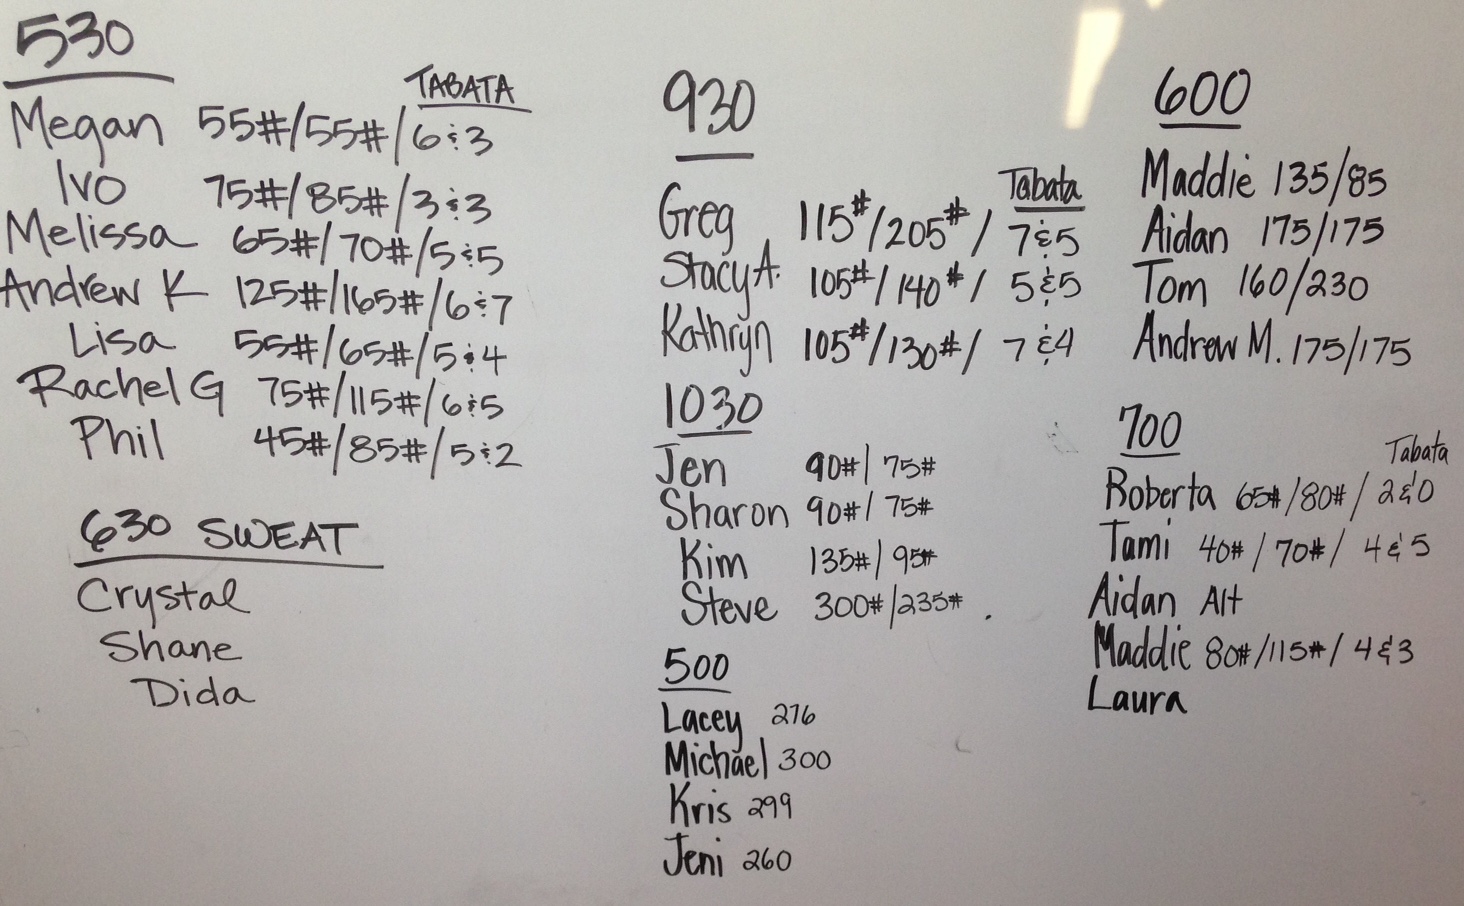 530
TABATA
Megan 55#/55#/6&3
Ivo 75#/85#/3&3
Melissa 65#/70#/5&5
Andrew K 125#/165#/6&7
Lisa 55#/65#/5&4
Rachel G 75#/115#/6&5
Phil 45#/85#/5&2
630 SWEAT
Crystal
Shane
Dida
930
Tabata
Greg 115#/205#/ 7&5
Stacy A. 105#/140#/ 5&5
Kathryn 105#/130#/ 7&4
1030
Jen 90#/ 75#
Sharon 90#/ 75#
Kim 135#/ 95#
Steve 300#/235#
500
Lacey 276
Michael 300
Kris 299
Jeni 260
600
Maddie 135/85
Aidan 175/175
Tom 160/230
Andrew M. 175/175
700
Tabata
Roberta 65#/80#/ 2&0
Tami 40#/70#/ 4&5
Aidan Alt
Maddie 80#/115#/ 4&3
Laura